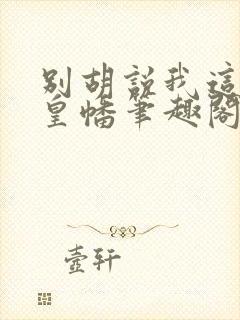 别胡説我這
皇幡筆趣閣
壺轩